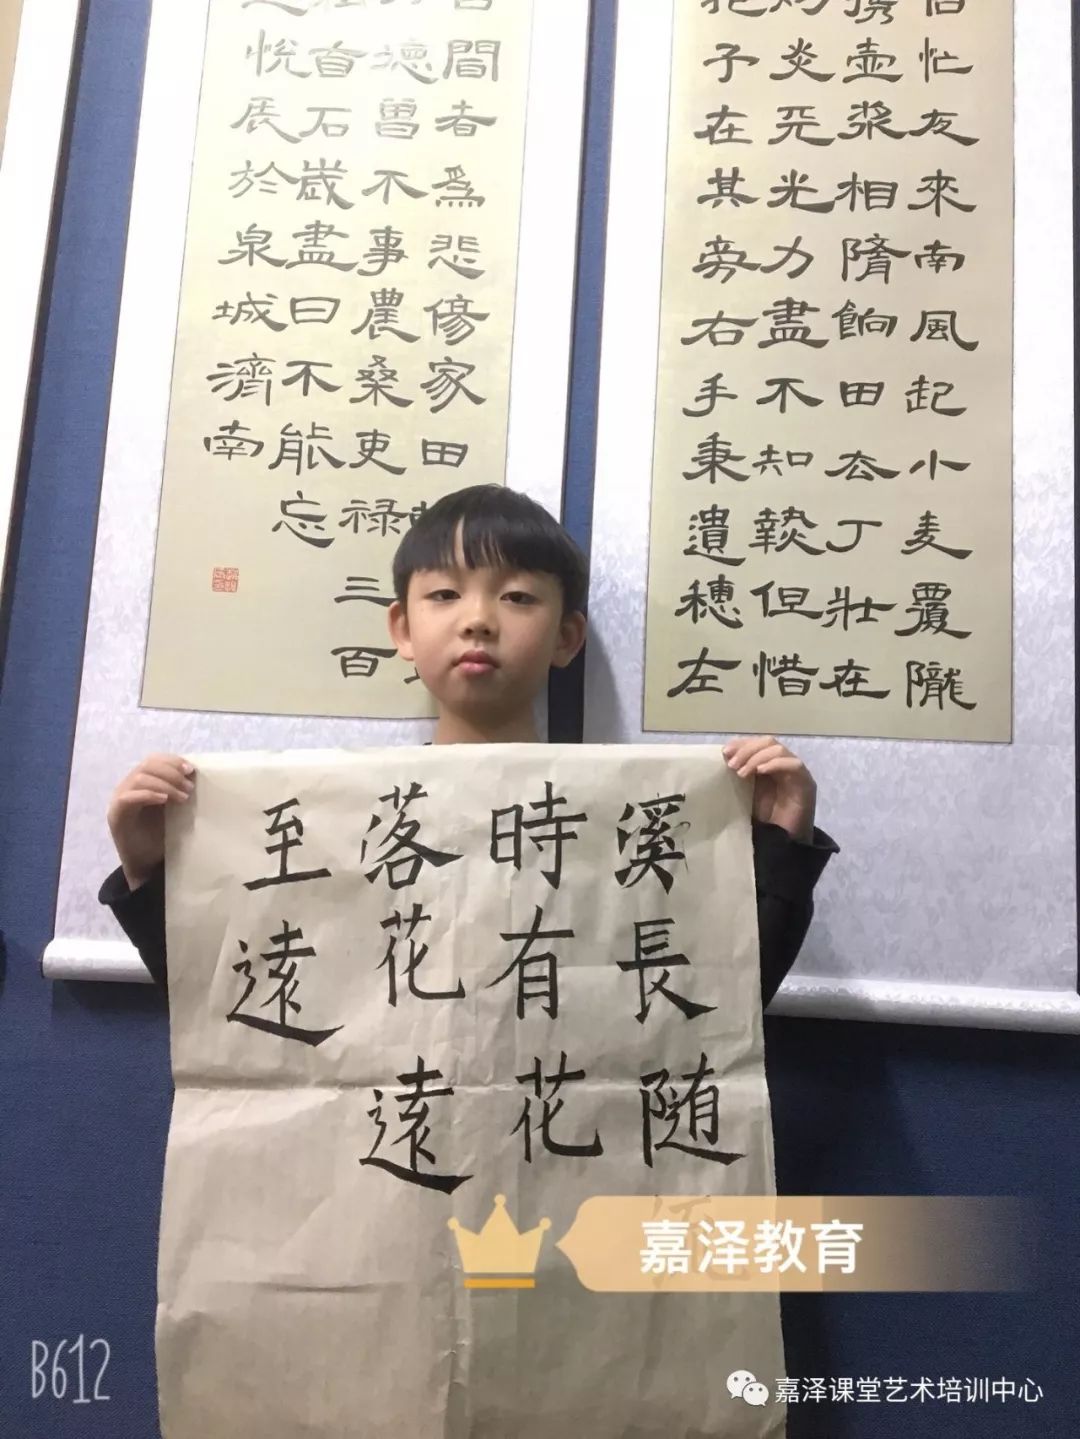 忙夜來南風起小麦覆隴
携壺漿相隋餉田去丁壯在
灼炎天光力盡不知熱但惜
子在其旁右手秉遺穗左
聞者為悲傷家田
德曾不事農桑吏禄三百
石歲盡日不能忘
悅展於泉城濟南
溪長随
時有花
落花遠
至遠
嘉泽教育
B612
嘉泽课堂艺术培训中心